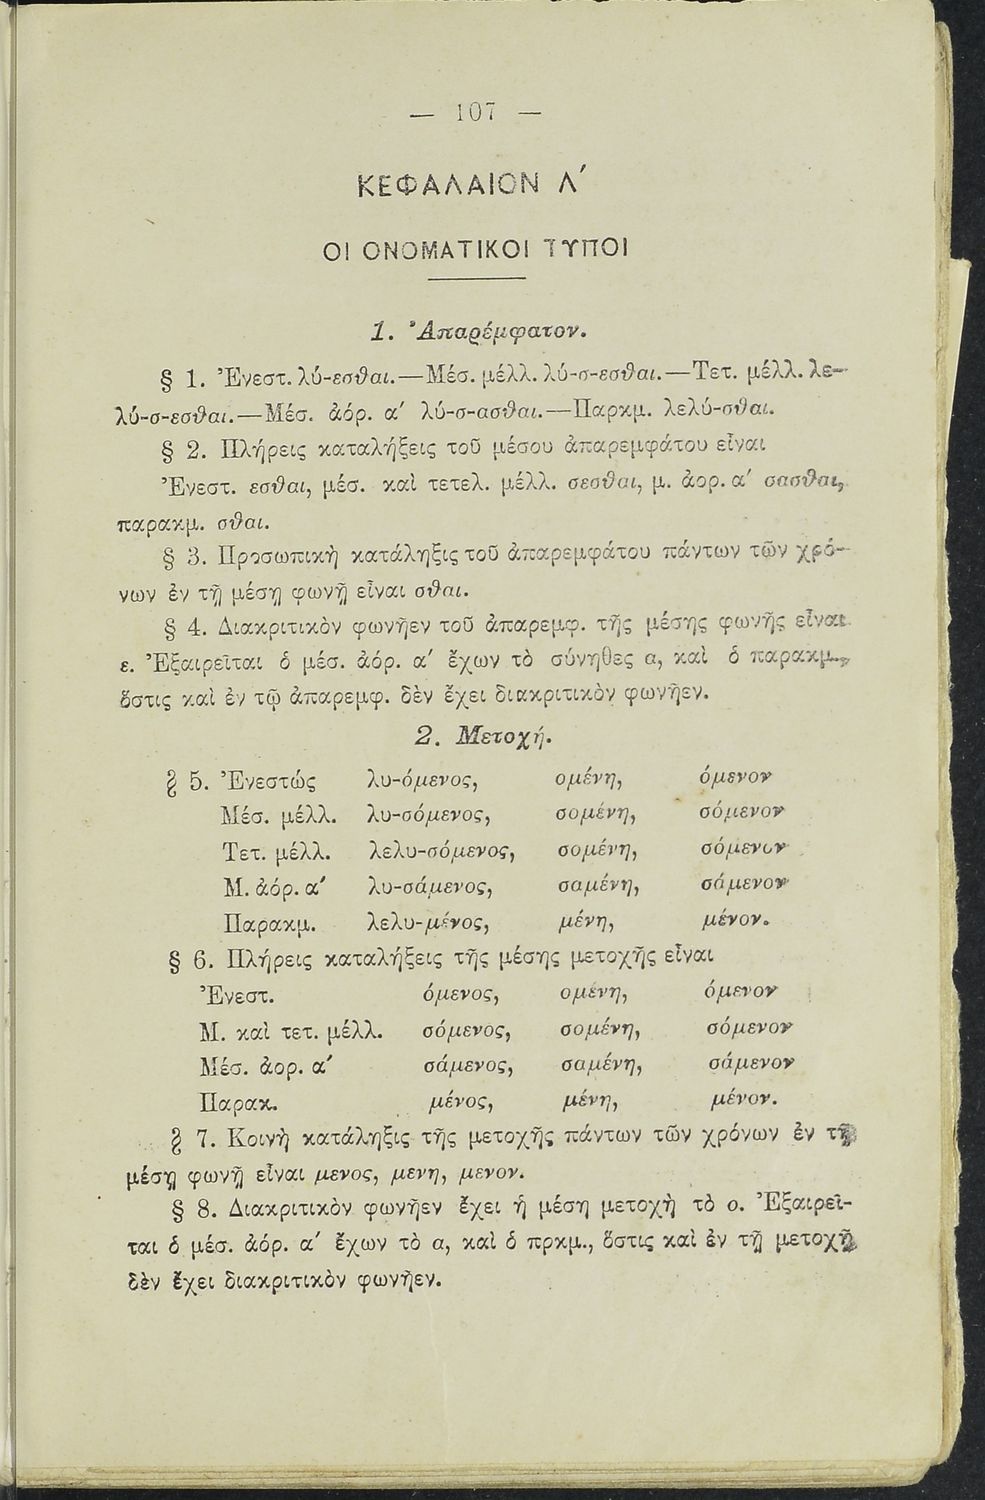 — 107 —
ΚΕΦΑΛΑΙΟΝ Λ΄
ΟΙ ΟΝΟΜΑΤΙΚΟΙ ΤΥΠΟΙ
1. Ἀπαρέμφατον.
§ 1. Ἐνεστ. λύ-εσθαι.—Μέσ. μέλλ. λύ-σ-εσθαι.—Τετ. μέλλ. λε-
λύ-σ-εσθαι.—Μέσ. ἀόρ. α΄ λύ-σ-ασθαι.—Παρκμ. λελύ-σθαι.
§ 2. Πλήρεις καταλήξεις τοῦ μέσου ἀπαρεμφάτου εἶναι
Ἐνεστ. εσθαι, μέσ. καὶ τετελ. μέλλ. σεσθαι, μ. ἀορ. α΄ σασθαι,
παρακμ. σθαι.
§ 3. Προσωπικὴ κατάληξις τοῦ ἀπαρεμφάτου πάντων τῶν χρό-
νων ἐν τῇ μέσῃ φωνῇ εἶναι σθαι.
§ 4. Διακριτικὸν φωνῆεν τοῦ ἀπαρεμφ. τῆς μέσης φωνῆς εἶναι
ε. Ἐξαιρεῖται ὁ μέσ. ἀόρ. α΄ ἔχων τὸ σύνηθες α, καὶ ὁ παρακμ.,
ὅστις καὶ ἐν τῷ ἀπαρεμφ. δὲν ἔχει διακριτικὸν φωνῆεν.
2. Μετοχή.
§ 5. Ἐνεστώς λυ-όμενος, ομένη, όμενον
Μέσ. μέλλ. λυ-σόμενος, σομένη, σόμενον
Τετ. μέλλ. λελυ-σόμενος, σομένη, σόμενον
Μ. ἀόρ. α΄ λυ-σάμενος, σαμένη, σάμενον
Παρακμ. λελυ-μένος, μένη, μένον.
§ 6. Πλήρεις καταλήξεις τῆς μέσης μετοχῆς εἶναι
Ἐνεστ. όμενος, ομένη, όμενον
Μ. καὶ τετ. μέλλ. σόμενος, σομένη, σόμενον
Μέσ. ἀορ. α΄ σάμενος, σαμένη, σάμενον
Παρακ. μένος, μένη, μένον.
§ 7. Κοινὴ κατάληξις τῆς μετοχῆς πάντων τῶν χρόνων ἐν τῇ
μέσῃ φωνῇ εἶναι μενος, μενη, μενον.
§ 8. Διακριτικὸν φωνῆεν ἔχει ἡ μέση μετοχὴ τὸ ο. Ἐξαιρεῖ-
ται ὁ μέσ. ἀόρ. α΄ ἔχων τὸ α, καὶ ὁ πρκμ., ὅστις καὶ ἐν τῇ μετοχῇ
δὲν ἔχει διακριτικὸν φωνῆεν.